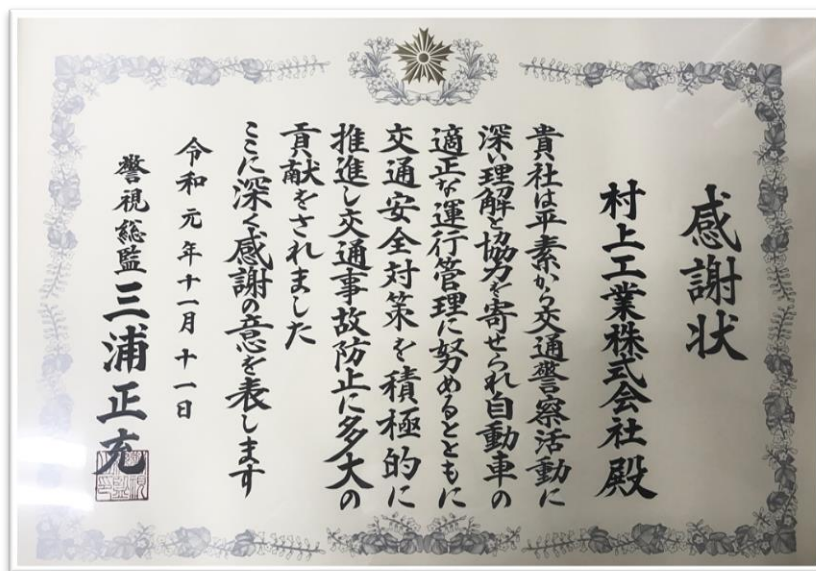 感謝状
村上工業株式会社殿
貴社は平素から交通警察活動に
深い理解と協力を寄せられ自動車の
適正な運行管理に努めるとともに
交通安全対策を積極的に
推進し交通事故防止に多大の
貢献をされました
ここに深く感謝の意を表します
令和元年十一月十一日
警視総監三浦正充